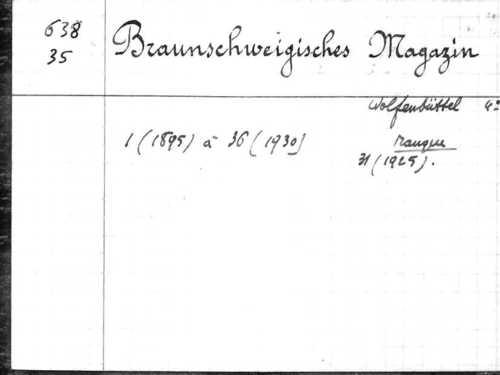 638
35
Braunschweigisches Magazin
Wolfenbüttel 4º
1 (1895) à 36 (1930)
manque
31 (1925).